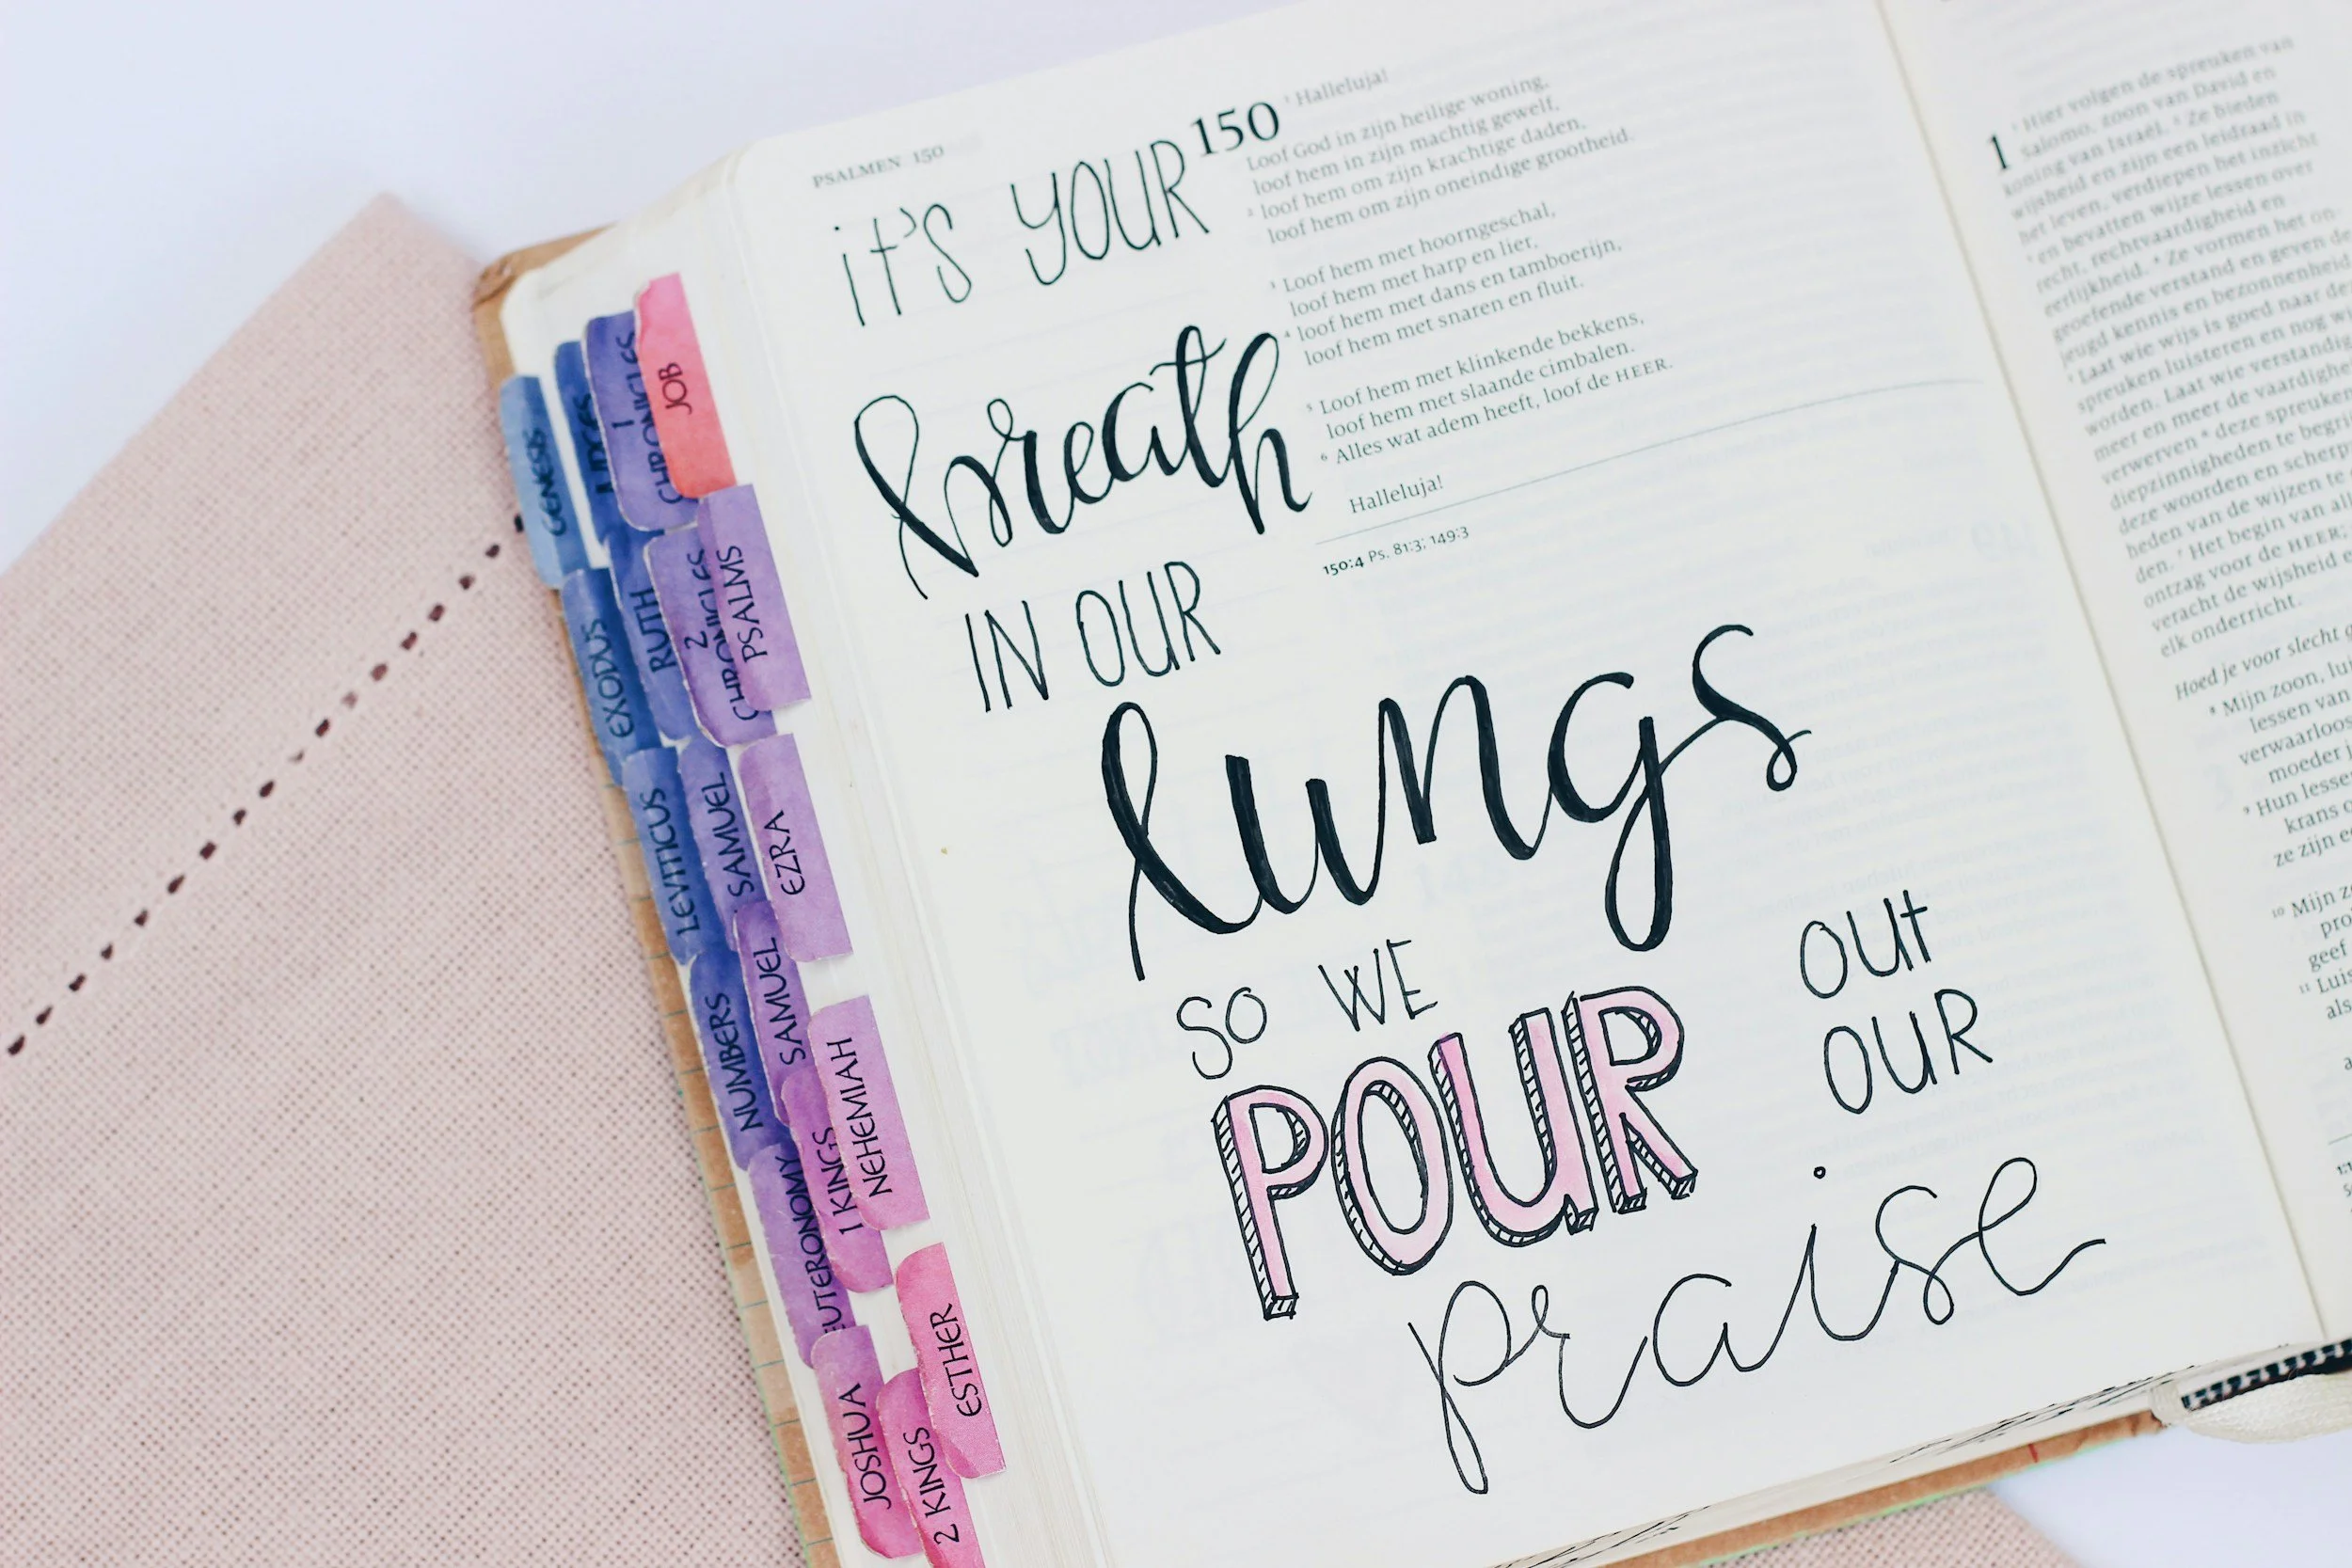 GENESIS
EXODUS
LEVITICUS
NUMBERS
JOSHUA
JUDGES
RUTH
SAMUEL
SAMUEL
1 KINGS
2 KINGS
1
CHRONICLES
2
CHRONICLES
EZRA
NEHEMIAH
ESTHER
JOB
PSALMS
PSALMEN 150
it's YOUR
breath
IN OUR
lungs
SO WE
POUR
OUt
OUR
praise
150 ¹ Halleluja!
Loof God in zijn heilige woning,
loof hem in zijn machtig gewelf,
² loof hem om zijn krachtige daden,
loof hem om zijn oneindige grootheid.
³ Loof hem met hoorngeschal,
loof hem met harp en lier,
⁴ loof hem met dans en tamboerijn,
loof hem met snaren en fluit.
⁵ Loof hem met klinkende bekkens,
loof hem met slaande cimbalen.
⁶ Alles wat adem heeft, loof de HEER.
Halleluja!
150:4 Ps. 81:3; 149:3
1 ¹ Hier volgen de spreuken van
Salomo, zoon van David en
koning van Israël. ² Ze bieden
wijsheid en zijn een leidraad in
het leven, verdiepen het inzicht
³ en bevatten wijze lessen over
recht, rechtvaardigheid en
eerlijkheid. ⁴ Ze vormen het on-
geoefende verstand en geven de
jeugd kennis en bezonnenheid
⁵ Laat wie wijs is goed naar de
spreuken luisteren en nog w
worden. Laat wie verstandig
meer en meer de vaardighe
verwerven ⁶ deze spreuken
diepzinnigheden te begri
deze woorden en scherp
heden van de wijzen te
den. ⁷ Het begin van al
ontzag voor de HEER.
veracht de wijsheid e
elk onderricht.
Hoed je voor slecht g
⁸ Mijn zoon, lui
lessen van
verwaarloo
moeder j
⁹ Hun lesse
krans
ze zijn e
¹⁰ Mijn z
pro
geef
¹¹ Luis
als